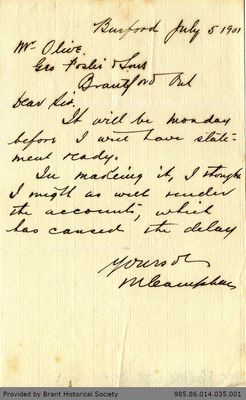 Burford July 5 1901
Mr Olive.
Geo Foster & Sons
Brantford Ont
Dear Sir.
It will be monday
before I will have state-
ment ready.
In making it, I thought
I might as well render
the accounts, which
has caused the delay
Yours &c
M Campbell
Provided by Brant Historical Society 985.86.014.035.001